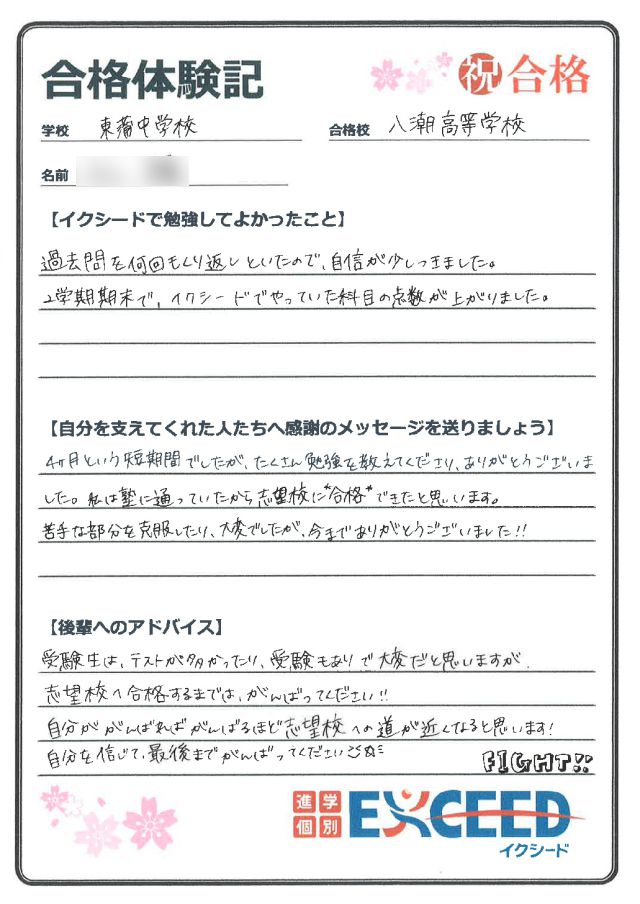 合格体験記
祝 合格
学校 東蒲中学校
合格校 八潮高等学校
名前
【イクシードで勉強してよかったこと】
過去問を何回もくり返しといたので、自信が少しつきました。
2学期期末で、イクシードでやっていた科目の点数が上がりました。
【自分を支えてくれた人たちへ感謝のメッセージを送りましょう】
4ヶ月という短期間でしたが、たくさん勉強を教えてくださり、ありがとうございま
した。私は塾に通っていたから志望校に"合格"できたと思います。
苦手な部分を克服したり、大変でしたが、今までありがとうございました!!
【後輩へのアドバイス】
受験生は、テストが多かったり、受験もありで大変だと思いますが
志望校へ合格するまでは、がんばってください!!
自分ががんばればがんばるほど志望校への道が近くなると思います!
自分を信じて、最後までがんばってください
FIGHT!!
進学
個別
EXCEED
イクシード